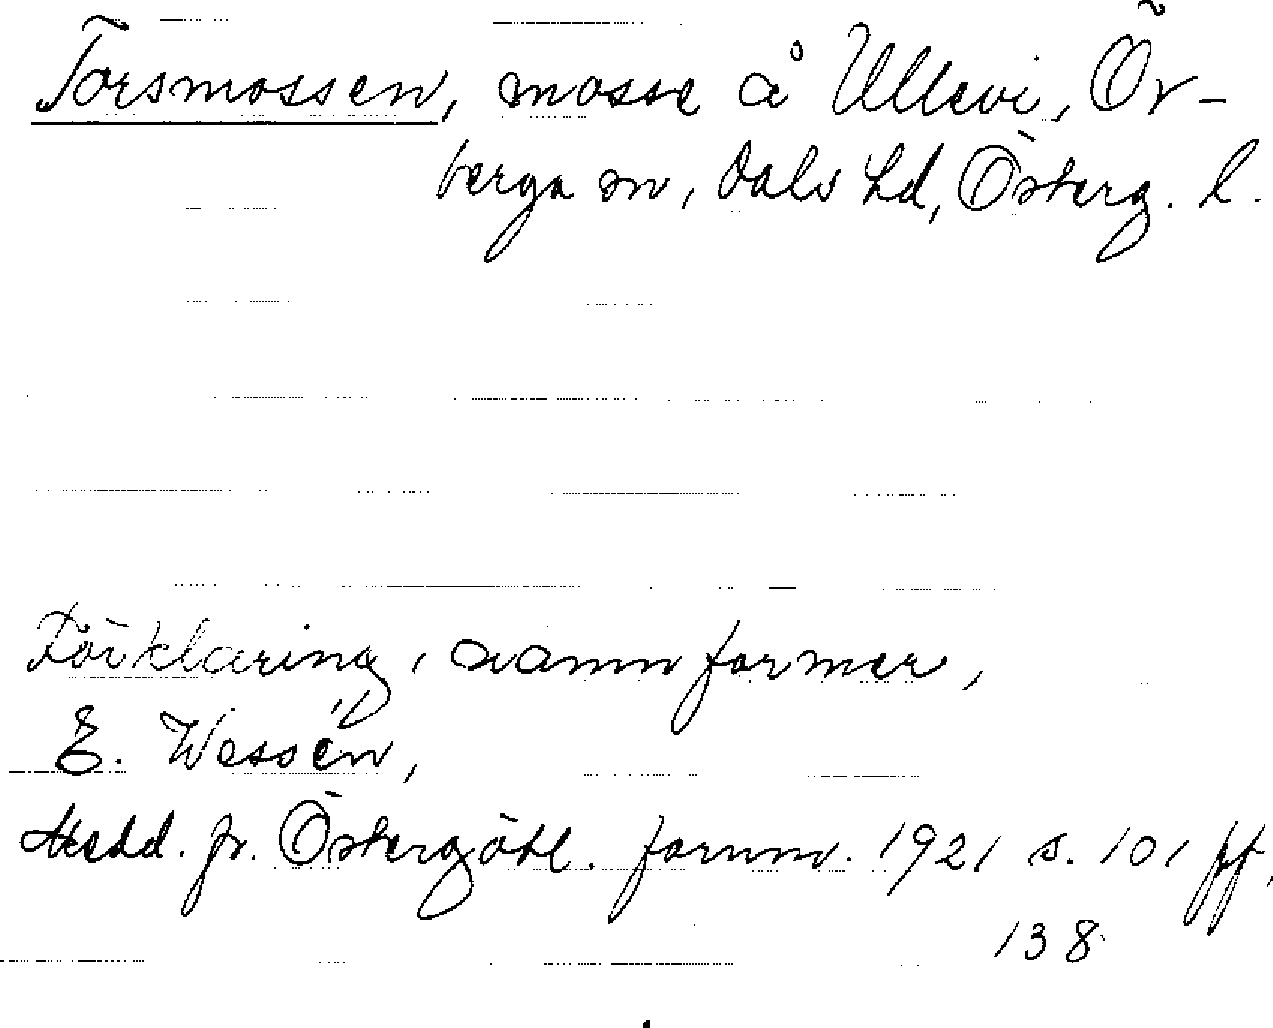 Torsmossen, mosse å Ullevi, Ör-
berga sn, Dals hd, Österg. l.
Förklaring, namnformer,
E. Wessén,
Medd. fr. Östergötl. fornm. 1921 s. 101 ff,
138